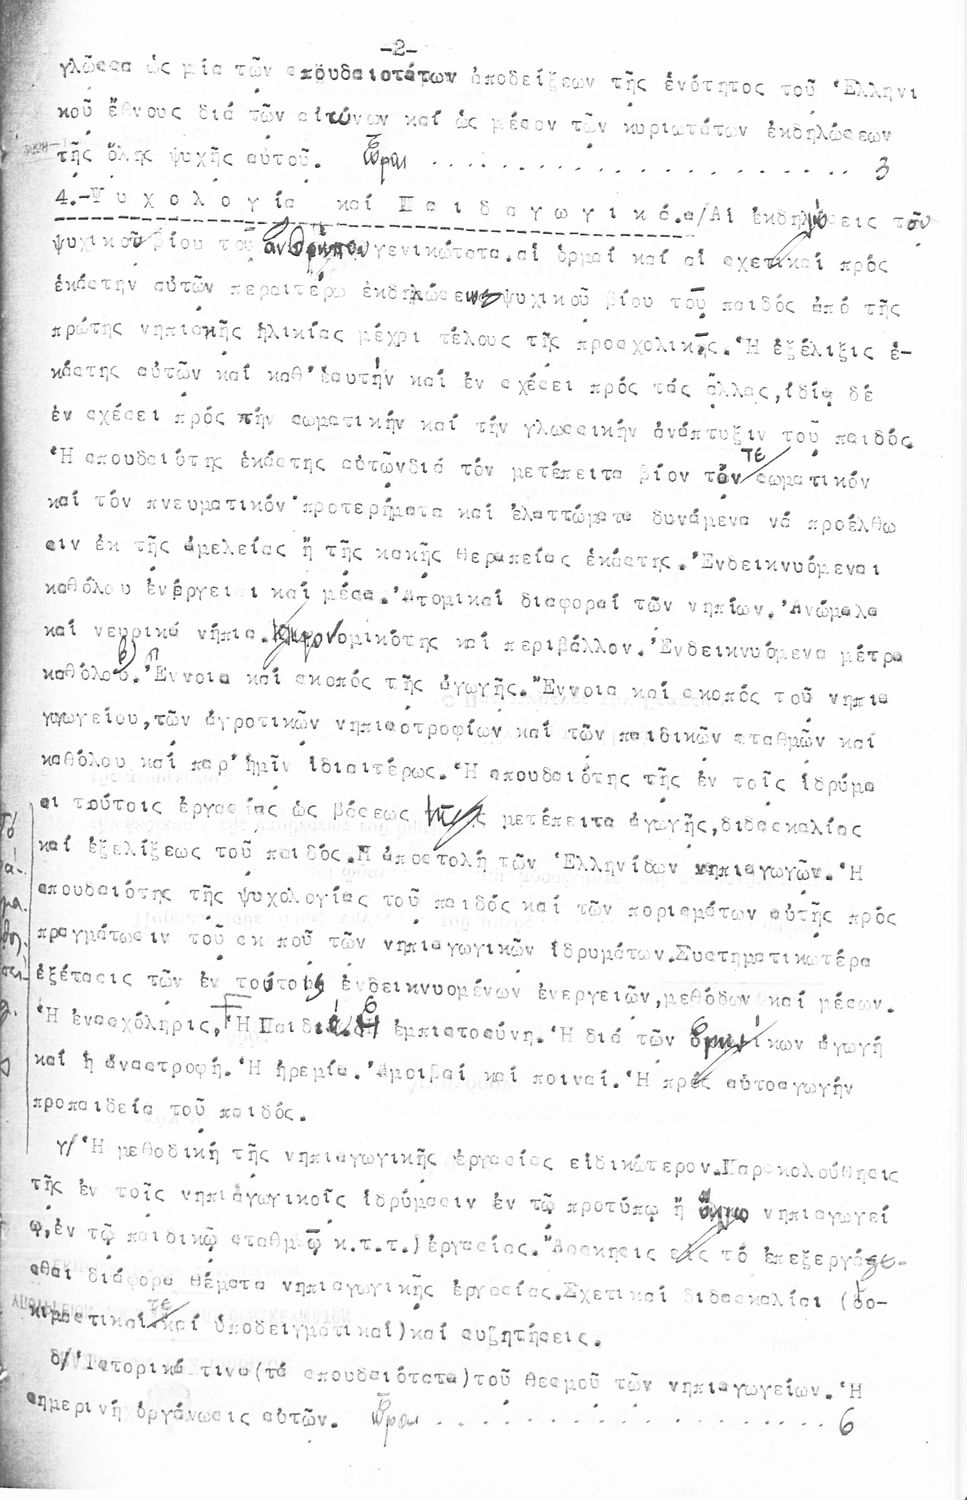 -2-
γλῶσσα ὡς μία τῶν σπουδαιοτάτων ἀποδείξεων τῆς ἑνότητος τοῦ Ἑλληνι
κοῦ ἔθνους διά τῶν αἰώνων καί ὡς μέσον τῶν κυριωτάτων ἐκδηλώσεων
τῆς ὅλης ψυχῆς αὐτοῦ. Ὧραι . . . . . . . . . . . . . . . . 3
4.-Ψ υ χ ο λ ο γ ία καί Π α ι δ α γ ω γ ι κ ά.α/Αἱ ἐκδηλώσεις τοῦ
ψυχικοῦ βίου τοῦ ἀνθρώπου γενικώτατα.αἱ ὁρμαί καί αἱ σχετικαί πρός
ἑκάστην αὐτῶν περαιτέρω ἐκδηλώσεις ψυχικοῦ βίου τοῦ παιδός ἀπό τῆς
πρώτης νηπιακῆς ἡλικίας μέχρι τέλους τῆς προσχολικῆς.Ἡ ἐξέλιξις ἑ-
κάστης αὐτῶν καί καθ'ἑαυτήν καί ἐν σχέσει πρός τάς ἄλλας,ἰδίᾳ δέ
ἐν σχέσει πρός τήν σωματικήν καί τήν γλωσσικήν ἀνάπτυξιν τοῦ παιδός.
Ἡ σπουδαιότης ἑκάστης αὐτῶνδιά τόν μετέπειτα βίον τόν τε σωματικόν
καί τόν πνευματικόν προτερήματα καί ἐλαττώματα δυνάμενα νά προέλθω
σιν ἐκ τῆς ἀμελείας ἤ τῆς κακῆς θεραπείας ἑκάστης.Ἐνδεικνυόμεναι
καθόλου ἐνέργειαι καί μέσα.Ἀτομικαί διαφοραί τῶν νηπίων.Ἀνώμαλα
καί νευρικά νήπια.Κληρονομικότης καί περιβάλλον.Ἐνδεικνυόμενα μέτρα
καθόλου. β) Ἡ Ἔννοια καί σκοπός τῆς ἀγωγῆς.Ἔννοια καί σκοπός τοῦ νηπια
γωγείου,τῶν ἀγροτικῶν νηπιοτροφίων καί τῶν παιδικῶν σταθμῶν καί
καθόλου καί παρ'ἡμῖν ἰδιαιτέρως.Ἡ σπουδαιότης τῆς ἐν τοῖς ἱδρύμα
σι τούτοις ἐργασίας ὡς βάσεως τῆς μετέπειτα ἀγωγῆς,διδασκαλίας
καί ἐξελίξεως τοῦ παιδός.Η ἀποστολή τῶν Ἑλληνίδων νηπιαγωγῶν.Ἡ
σπουδαιότης τῆς ψυχολογίας τοῦ παιδός καί τῶν πορισμάτων αὐτῆς πρός
πραγμάτωσιν τοῦ σκοποῦ τῶν νηπιαγωγικῶν ἱδρυμάτων.Συστηματικωτέρα
ἐξέτασις τῶν ἐν τούτοις ἐνδεικνυομένων ἐνεργειῶν,μεθόδων καί μέσων.
Ἡ ἐνασχόλησις, Ἡ Παιδιά. Ἡ ἐμπιστοσύνη.Ἡ διά τῶν ὁμηλίκων ἀγωγή
καί ἡ ἀναστροφή.Ἡ ἠρεμία.Ἀμοιβαί καί ποιναί.Ἡ πρός αὐτοαγωγήν
προπαιδεία τοῦ παιδός.
γ/Ἡ μεθοδική τῆς νηπιαγωγικῆς ἐργασίας εἰδικώτερον.Παρακολούθησις
τῆς ἐν τοῖς νηπιαγωγικοῖς ἱδρύμασιν ἐν τῷ προτύπῳ ἤ ἄλλῳ νηπιαγωγεί
ῳ,ἐν τῷ παιδικῷ σταθμῷ κ.τ.τ.)ἐργασίας.Ἄσκησις εἰς τό ἐπεξεργάζε-
σθαι διάφορα θέματα νηπιαγωγικῆς ἐργασίας.Σχετικαί διδασκαλίαι (δο-
κιμαστικαί τε καί ὑποδειγματικαί)καί συζητήσεις.
δ/Ἱστορικά τινα(τά σπουδαιότατα)τοῦ θεσμοῦ τῶν νηπιαγωγείων.Ἡ
σημερινή ὀργάνωσις αὐτῶν. Ὧραι . . . . . . . . . . . . . . . . 6